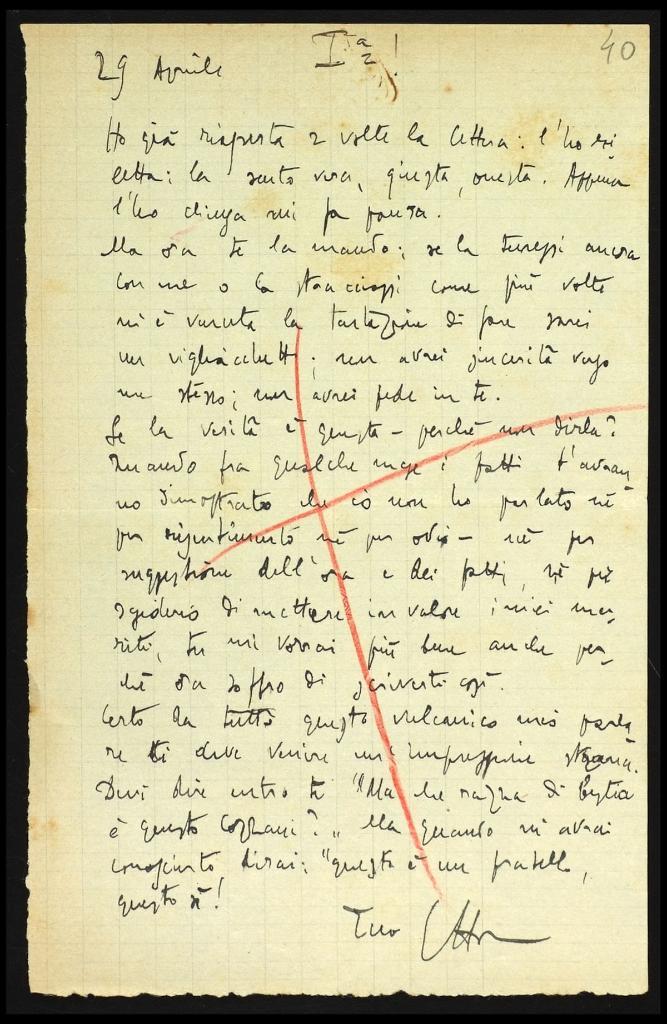 40
I.a 2!
29 Aprile
Ho già riaperta 2 volte la lettera: l'ho ri
letta: la sento vera, giusta, onesta. Appena
l'ho chiusa mi fa paura.
Ma ora te la mando; se la tenessi ancora
con me o la stracciassi come più volte
mi è venuta la tentazione di fare sarei
un vigliacchetto; non avrei sincerità verso
me stesso; non avrei fede in te.
Se la verità è questa – perché non dirla?
Quando fra qualche mese i fatti t'avran
no dimostrato che ciò non ho parlato né
per risentimento né per odio – né per
suggestione dell'ora e dei fatti, né per
desiderio di mettere in valore i miei me-
riti, tu mi vorrai più bene anche per-
ché ora soffro di scriverti così.
Certo da tutto questo vulcanico mio parla
re ti deve venire un'impressione strana.
Devi dire entro te "Ma che razza di bestia
è questo Cozzani?" Ma quando mi avrai
conosciuto, dirai: "questo è un fratello,
questo sì!
Tuo Ettore